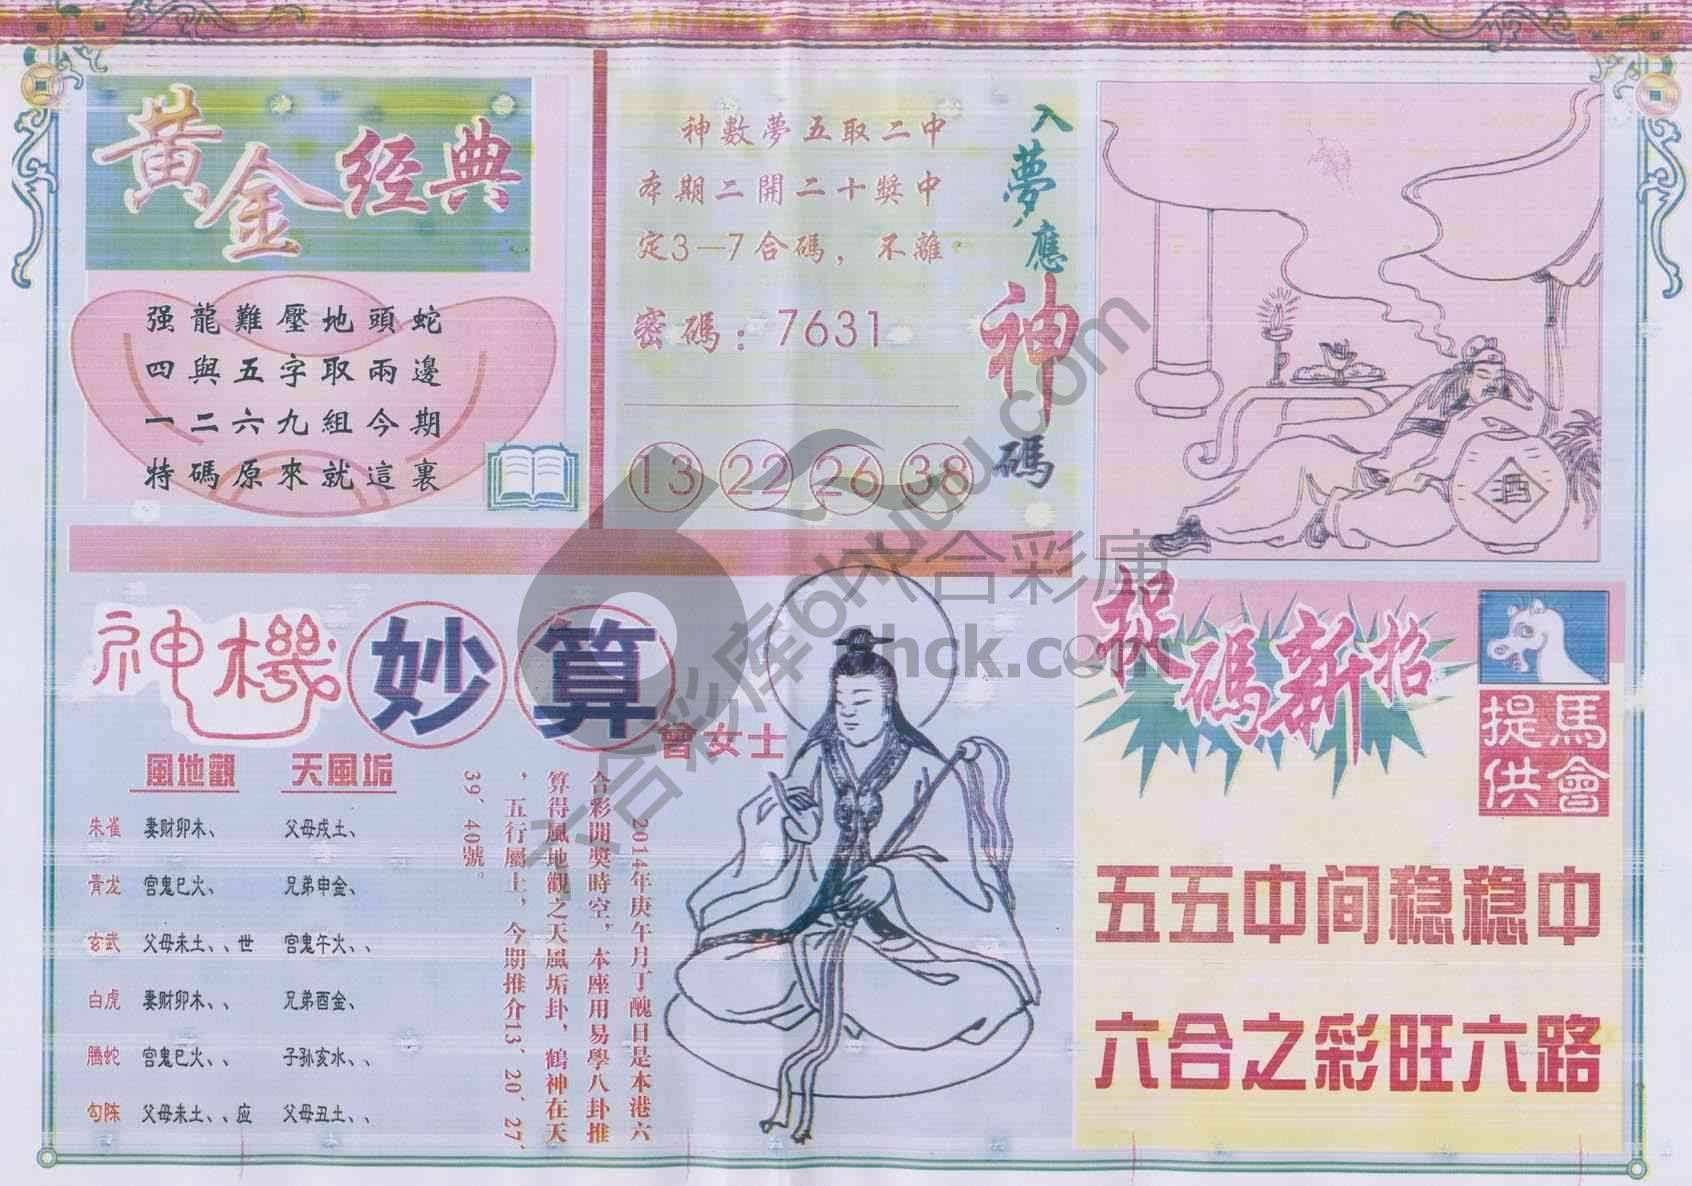 黄金经典
强龍難壓地頭蛇
四與五字取兩邊
一二六九組今期
特碼原來就這裏
入夢應神碼
神數夢五取二中
本期二開二十獎中
定3—7合碼，不離
密碼：7631
13 22 26 38
酒
神機妙算
曾女士
風地觀 天風垢
朱雀 妻财卯木、 父母戌土、
青龙 官鬼巳火、 兄弟申金、
玄武 父母未土、、世 官鬼午火、、
白虎 妻财卯木、、 兄弟酉金、
腾蛇 官鬼巳火、、 子孙亥水、、
勾陈 父母未土、、应 父母丑土、、
2014年庚午月丁醜日是本港六
合彩開獎時空，本座用易學八卦推
算得風地觀之天風垢卦，鶴神在天
，五行屬土，今期推介13、20、27、
39、40號。
捉碼新招
馬會提供
五五中间稳稳中
六合之彩旺六路
六合彩库6hkuku.com
六合彩庫